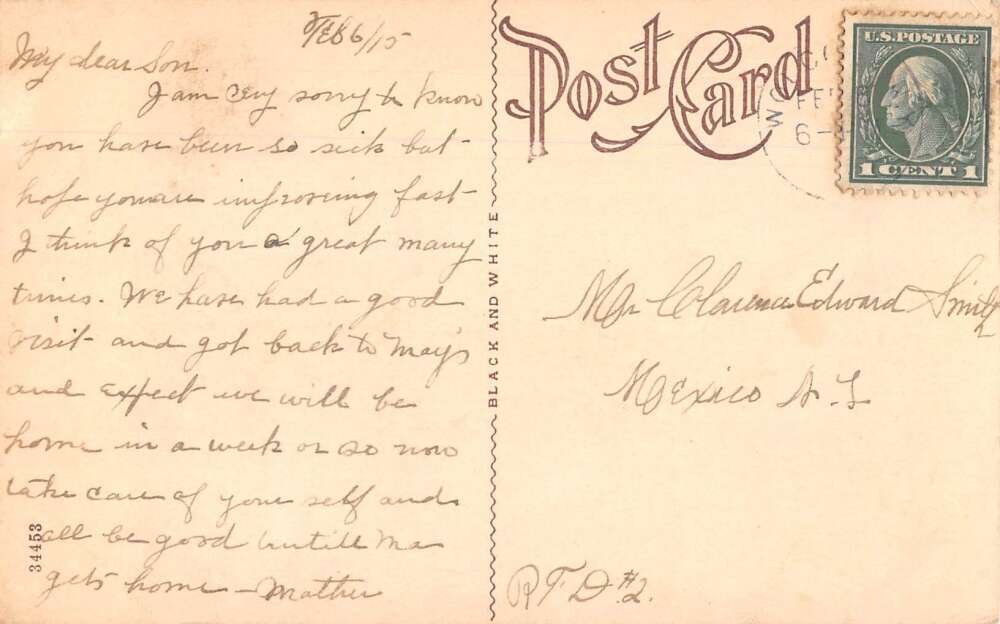 Feb 6/15
My dear Son.
I am very sorry to know
you have been so sick but
hope you are improving fast
I think of you a great many
times. We have had a good
visit and got back to May's
and expect we will be
home in a week or so now
take care of your self and
all be good untill Ma
gets home - Mother
34453
BLACK AND WHITE
Post Card
U.S. POSTAGE
1 CENT 1
FEB
6-
Mr Clarence Edward Smith
Mexico N.Y.
R F D #2.